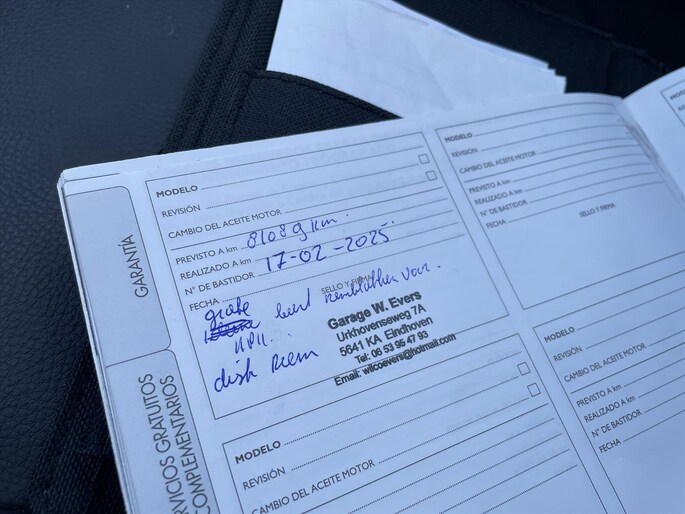 MODELO
REVISIÓN
CAMBIO DEL ACEITE MOTOR
PREVISTO A km
REALIZADO A km 81089 km.
N° DE BASTIDOR 17-02-2025.
FECHA
SELLO Y FIRMA
grote beurt remblokken voor.
APK.
dist Riem
Garage W. Evers
Urkhovenseweg 7A
5641 KA Eindhoven
Tel: 06 53 95 47 93
Email: wilcoevers@hotmail.com
GARANTÍA
SERVICIOS GRATUITOS
COMPLEMENTARIOS
MODELO
REVISIÓN
CAMBIO DEL ACEITE MOTOR
PREVISTO A km
REALIZADO A km
N° DE BASTIDOR
FECHA
SELLO Y FIRMA
MODELO
REVISIÓN
CAMBIO DEL ACEITE MOTOR
MODELO
REVISIÓN
CAMBIO DEL ACEITE MOTOR
PREVISTO A km
REALIZADO A km
N° DE BASTIDOR
FECHA